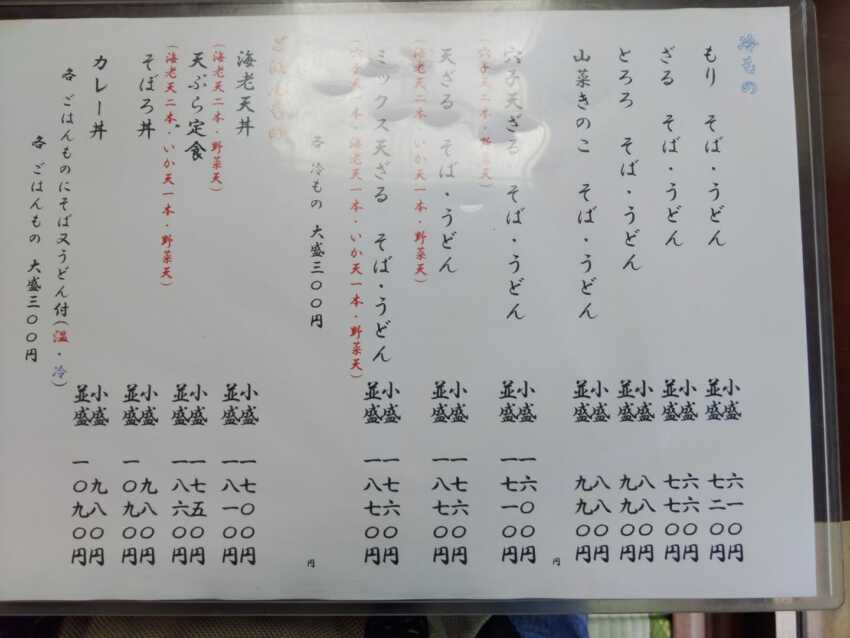 冷もの
もり そば・うどん
小盛 六一〇円
並盛 七二〇円
ざる そば・うどん
小盛 六六〇円
並盛 七七〇円
とろろ そば・うどん
小盛 八八〇円
並盛 九九〇円
山菜きのこ そば・うどん
小盛 八八〇円
並盛 九九〇円
穴子天ざる そば・うどん
小盛 一六〇〇円
並盛 一七一〇円
(穴子天 本・野菜天)
円
天ざる そば・うどん
小盛 一七六〇円
並盛 一八七〇円
(海老天二本・いか天一本・野菜天)
ミックス天ざる そば・うどん
小盛 一七六〇円
並盛 一八七〇円
(穴子天一本・海老天一本・いか天一本・野菜天)
各 冷もの 大盛三〇〇円
円
ごはんもの
海老天丼
小盛 一七〇〇円
並盛 一八一〇円
(海老天二本・野菜天)
天ぷら定食
小盛 一七五〇円
並盛 一八六〇円
(海老天二本・いか天一本・野菜天)
そぼろ丼
小盛 九八〇円
並盛 一〇九〇円
カレー丼
小盛 九八〇円
並盛 一〇九〇円
各 ごはんものにそば又うどん付(温・冷)
各 ごはんもの 大盛三〇〇円